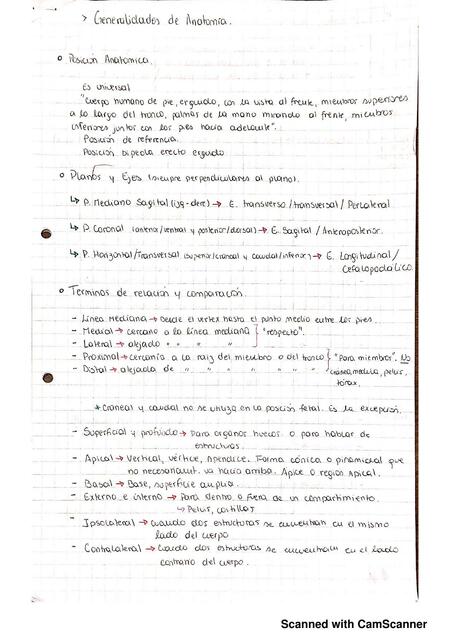 > Generalidades de Anatomía.
Posición Anatomica.
Es universal
"Cuerpo humano de pie, erguido, con la vista al frente, miembros superiores
a lo largo del tronco, palmas de la mano mirando al frente, miembros
inferiores juntos con los pies hacia adelante".
Posición de referencia.
Posición bipeda erecto erguido
Planos y Ejes (siempre perpendiculares al plano).
↳ P. Mediano Sagital (izq-der) → E. transverso/transversal/
↳ P. Coronal (anterior/ventral y posterior/dorsal) → E. Sagital / Anteroposterior.
↳ P. Horizontal/Transversal (superior/craneal y caudal/inferior) → E. Longitudinal/
Terminos de relación y comparación.
- Línea Mediana → Desde el vertex hasta el punto medio entre los pies.
- Medial → cercano a la línea mediana } "respecto".
- Lateral → alejado " " " "
- Proximal → cercanía a la raiz del miembro o del tronco } "Para miembros". No
- Distal → alejada de " " " " " " cráneo, medula, pelvis,
tórax.
* Craneal y caudal no se utiliza en la posición fetal. Es la excepción.
- Superficial y profundo → Para organos huecos o para hablar de
estructuras.
- Apical → Vertical, vértice, apendice. Forma cónica o piramidal que
no necesariament. va hacia arriba. Apice o region apical.
- Basal → Base, superficie amplia.
- Externo e interno → Para dentro o fuera de un compartimento.
↳ Pelvis, costillas
- Ipsolateral → Cuando dos estructuras se encuentran en el mismo
lado del cuerpo
- Contralateral → Cuando dos estructuras se encuentran en el lado
contrario del cuerpo.
Scanned with CamScanner